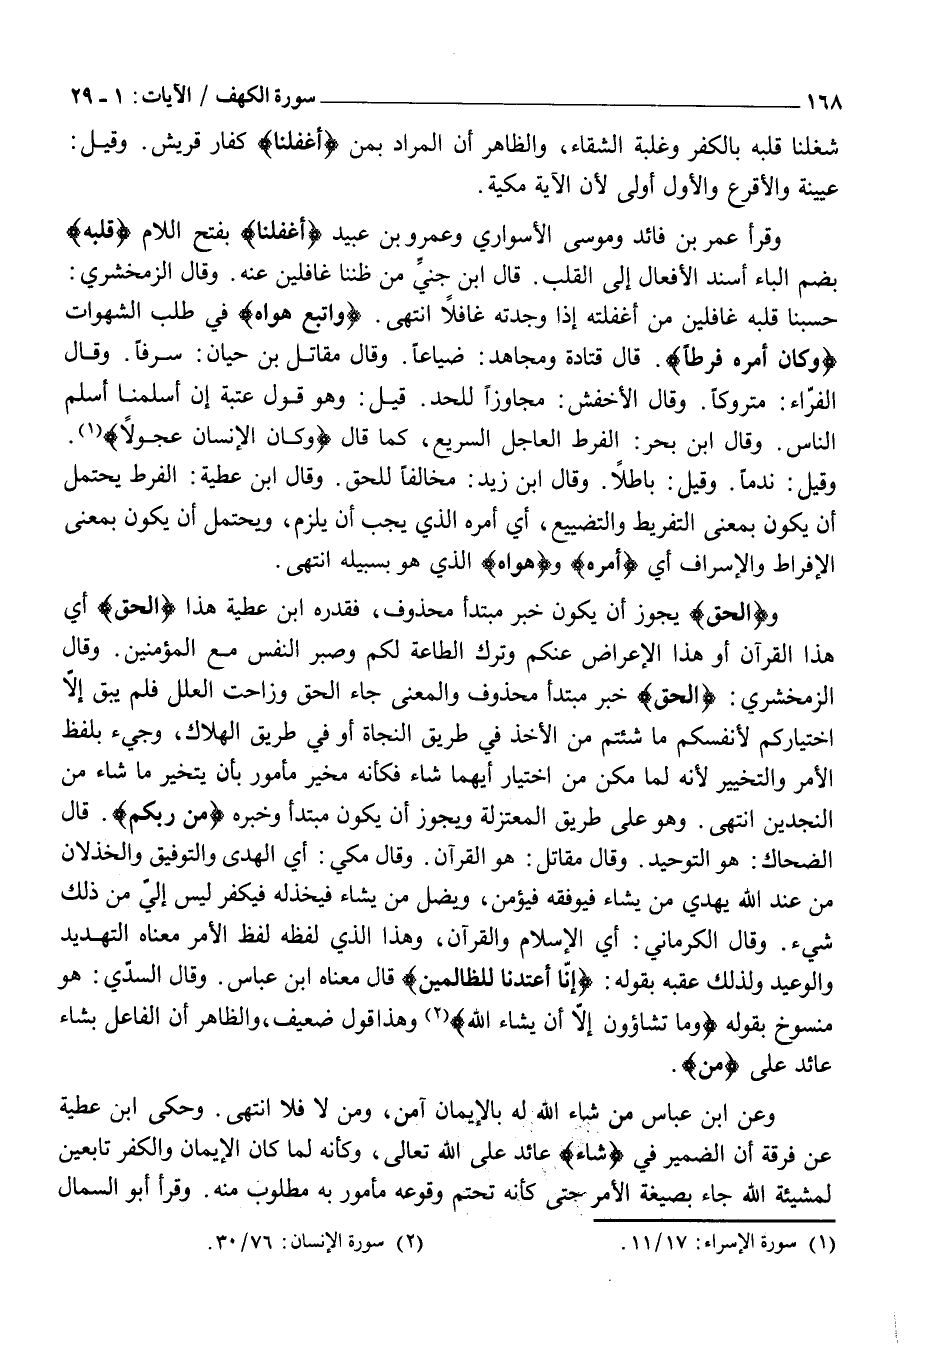 ١٦٨ ــــــــــــــــــــ سورة الكهف / الآيات: ١ ـ ٢٩
شغلنا قلبه بالكفر وغلبة الشقاء، والظاهر أن المراد بمن ﴿أغفلنا﴾ كفار قريش. وقيل:
عيينة والأقرع والأول أولى لأن الآية مكية.
وقرأ عمر بن فائد وموسى الأسواري وعمرو بن عبيد ﴿أغفلنا﴾ بفتح اللام ﴿قلبه﴾
بضم الباء أسند الأفعال إلى القلب. قال ابن جنيّ من ظننا غافلين عنه. وقال الزمخشري:
حسبنا قلبه غافلين من أغفلته إذا وجدته غافلاً انتهى. ﴿واتبع هواه﴾ في طلب الشهوات
﴿وكان أمره فرطاً﴾. قال قتادة ومجاهد: ضياعاً. وقال مقاتل بن حيان: سرفاً. وقال
الفرّاء: متروكاً. وقال الأخفش: مجاوزاً للحد. قيل: وهو قول عتبة إن أسلمنا أسلم
الناس. وقال ابن بحر: الفرط العاجل السريع، كما قال ﴿وكان الإنسان عجولاً﴾(١).
وقيل: ندماً. وقيل: باطلاً. وقال ابن زيد: مخالفاً للحق. وقال ابن عطية: الفرط يحتمل
أن يكون بمعنى التفريط والتضييع، أي أمره الذي يجب أن يلزم، ويحتمل أن يكون بمعنى
الإفراط والإسراف أي ﴿أمره﴾ و﴿هواه﴾ الذي هو بسبيله انتهى.
و﴿الحق﴾ يجوز أن يكون خبر مبتدأ محذوف، فقدره ابن عطية هذا ﴿الحق﴾ أي
هذا القرآن أو هذا الإعراض عنكم وترك الطاعة لكم وصبر النفس مع المؤمنين. وقال
الزمخشري: ﴿الحق﴾ خبر مبتدأ محذوف والمعنى جاء الحق وزاحت العلل فلم يبق إلّا
اختياركم لأنفسكم ما شئتم من الأخذ في طريق النجاة أو في طريق الهلاك، وجيء بلفظ
الأمر والتخيير لأنه لما مكن من اختيار أيهما شاء فكأنه مخير مأمور بأن يتخير ما شاء من
النجدين انتهى. وهو على طريق المعتزلة ويجوز أن يكون مبتدأ وخبره ﴿من ربكم﴾. قال
الضحاك: هو التوحيد. وقال مقاتل: هو القرآن. وقال مكي: أي الهدى والتوفيق والخذلان
من عند الله يهدي من يشاء فيوفقه فيؤمن، ويضل من يشاء فيخذله فيكفر ليس إليّ من ذلك
شيء. وقال الكرماني: أي الإسلام والقرآن، وهذا الذي لفظه لفظ الأمر معناه التهديد
والوعيد ولذلك عقبه بقوله: ﴿إنّا أعتدنا للظالمين﴾ قال معناه ابن عباس. وقال السدّي: هو
منسوخ بقوله ﴿وما تشاؤون إلّا أن يشاء الله﴾(٢) وهذا قول ضعيف، والظاهر أن الفاعل بشاء
عائد على ﴿من﴾.
وعن ابن عباس من شاء الله له بالإيمان آمن، ومن لا فلا انتهى. وحكى ابن عطية
عن فرقة أن الضمير في ﴿شاء﴾ عائد على الله تعالى، وكأنه لما كان الإيمان والكفر تابعين
لمشيئة الله جاء بصيغة الأمر حتى كأنه تحتم وقوعه مأمور به مطلوب منه. وقرأ أبو السمال
(١) سورة الإسراء: ١١/١٧.
(٢) سورة الإنسان: ٣٠/٧٦.